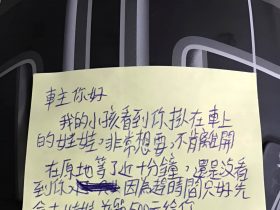 車主你好
我的小孩看到你掛在車上
的娃娃,非常想要,不肯離開
在原地等了近十分鐘,還是沒看
到你,因為趕時間只好先